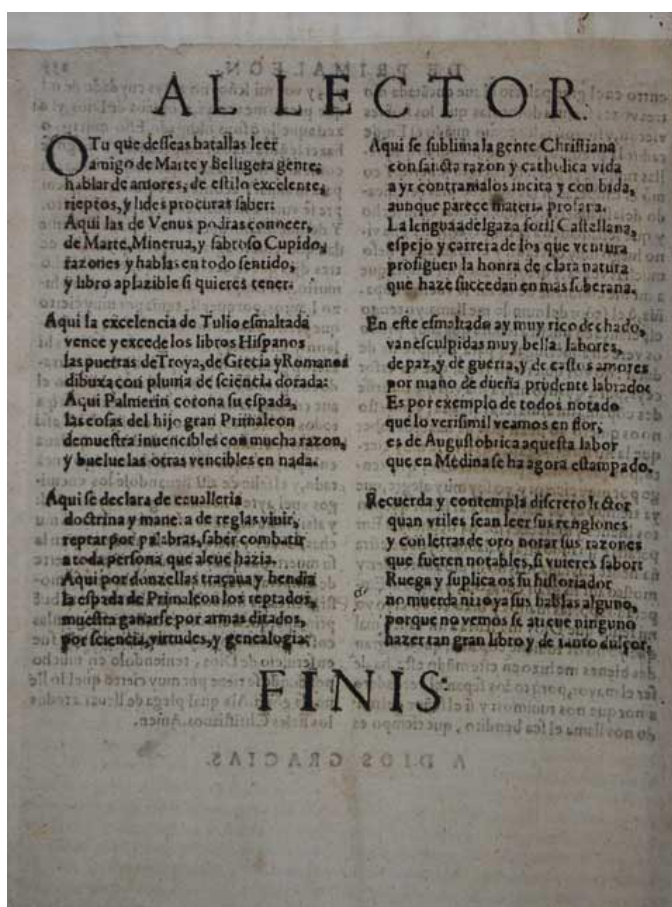 AL LECTOR.
O Tu que desseas batallas leer
amigo de Marte y Belligera gente,
hablar de amores, de estilo excelente,
rieptos, y lides procuras saber:
Aqui las de Venus podras conocer,
de Marte, Minerua, y sabroso Cupido,
razones y hablas en todo sentido,
y libro aplazible si quieres tener.
Aqui la excelencia de Tulio esmaltada
vence y excede los libros Hispanos
las puertas de Troya, de Grecia y Romanos
dibuxa con pluma de sciencia dorada:
Aqui Palmerin corona su espada,
las cosas del hijo gran Primaleon
demuestra inuencibles con mucha razon,
y buelue las otras vencibles en nada.
Aqui se declara de caualleria
doctrina y manera de reglas viuir,
reptar por palabras, saber combatir
a toda persona que aleue hazia.
Aqui por donzellas traçaua y hendia
la espada de Primaleon los reptados,
muestra ganarse por armas ditados,
por sciencia, virtudes, y genealogia.
Aqui se sublima la gente Christiana
con sancta razon y catholica vida
a yr contra malos incita y conbida,
aunque parece materia profana.
La lengua adelgaza sotil Castellana,
espejo y carrera de los que ventura
prosiguen la honra de clara natura
que haze succedan en mas soberana.
En este esmaltado ay muy rico dechado,
van esculpidas muy bellas labores,
de paz, y de guerra, y de castos amores
por mano de dueña prudente labrado:
Es por exemplo de todos notado
que lo verisimil veamos en flor,
es de Augustobrica aquesta labor
que en Medina se ha agora estampado.
Recuerda y contempla discreto lector
quan vtiles sean leer sus renglones
y con letras de oro notar sus razones
que fueren notables, si vuieres sabor:
Ruega y suplica os su historiador
no muerda ni roya sus hablas alguno,
porque no vemos se atreue ninguno
hazer tan gran libro y de tanto dulçor.
FINIS.